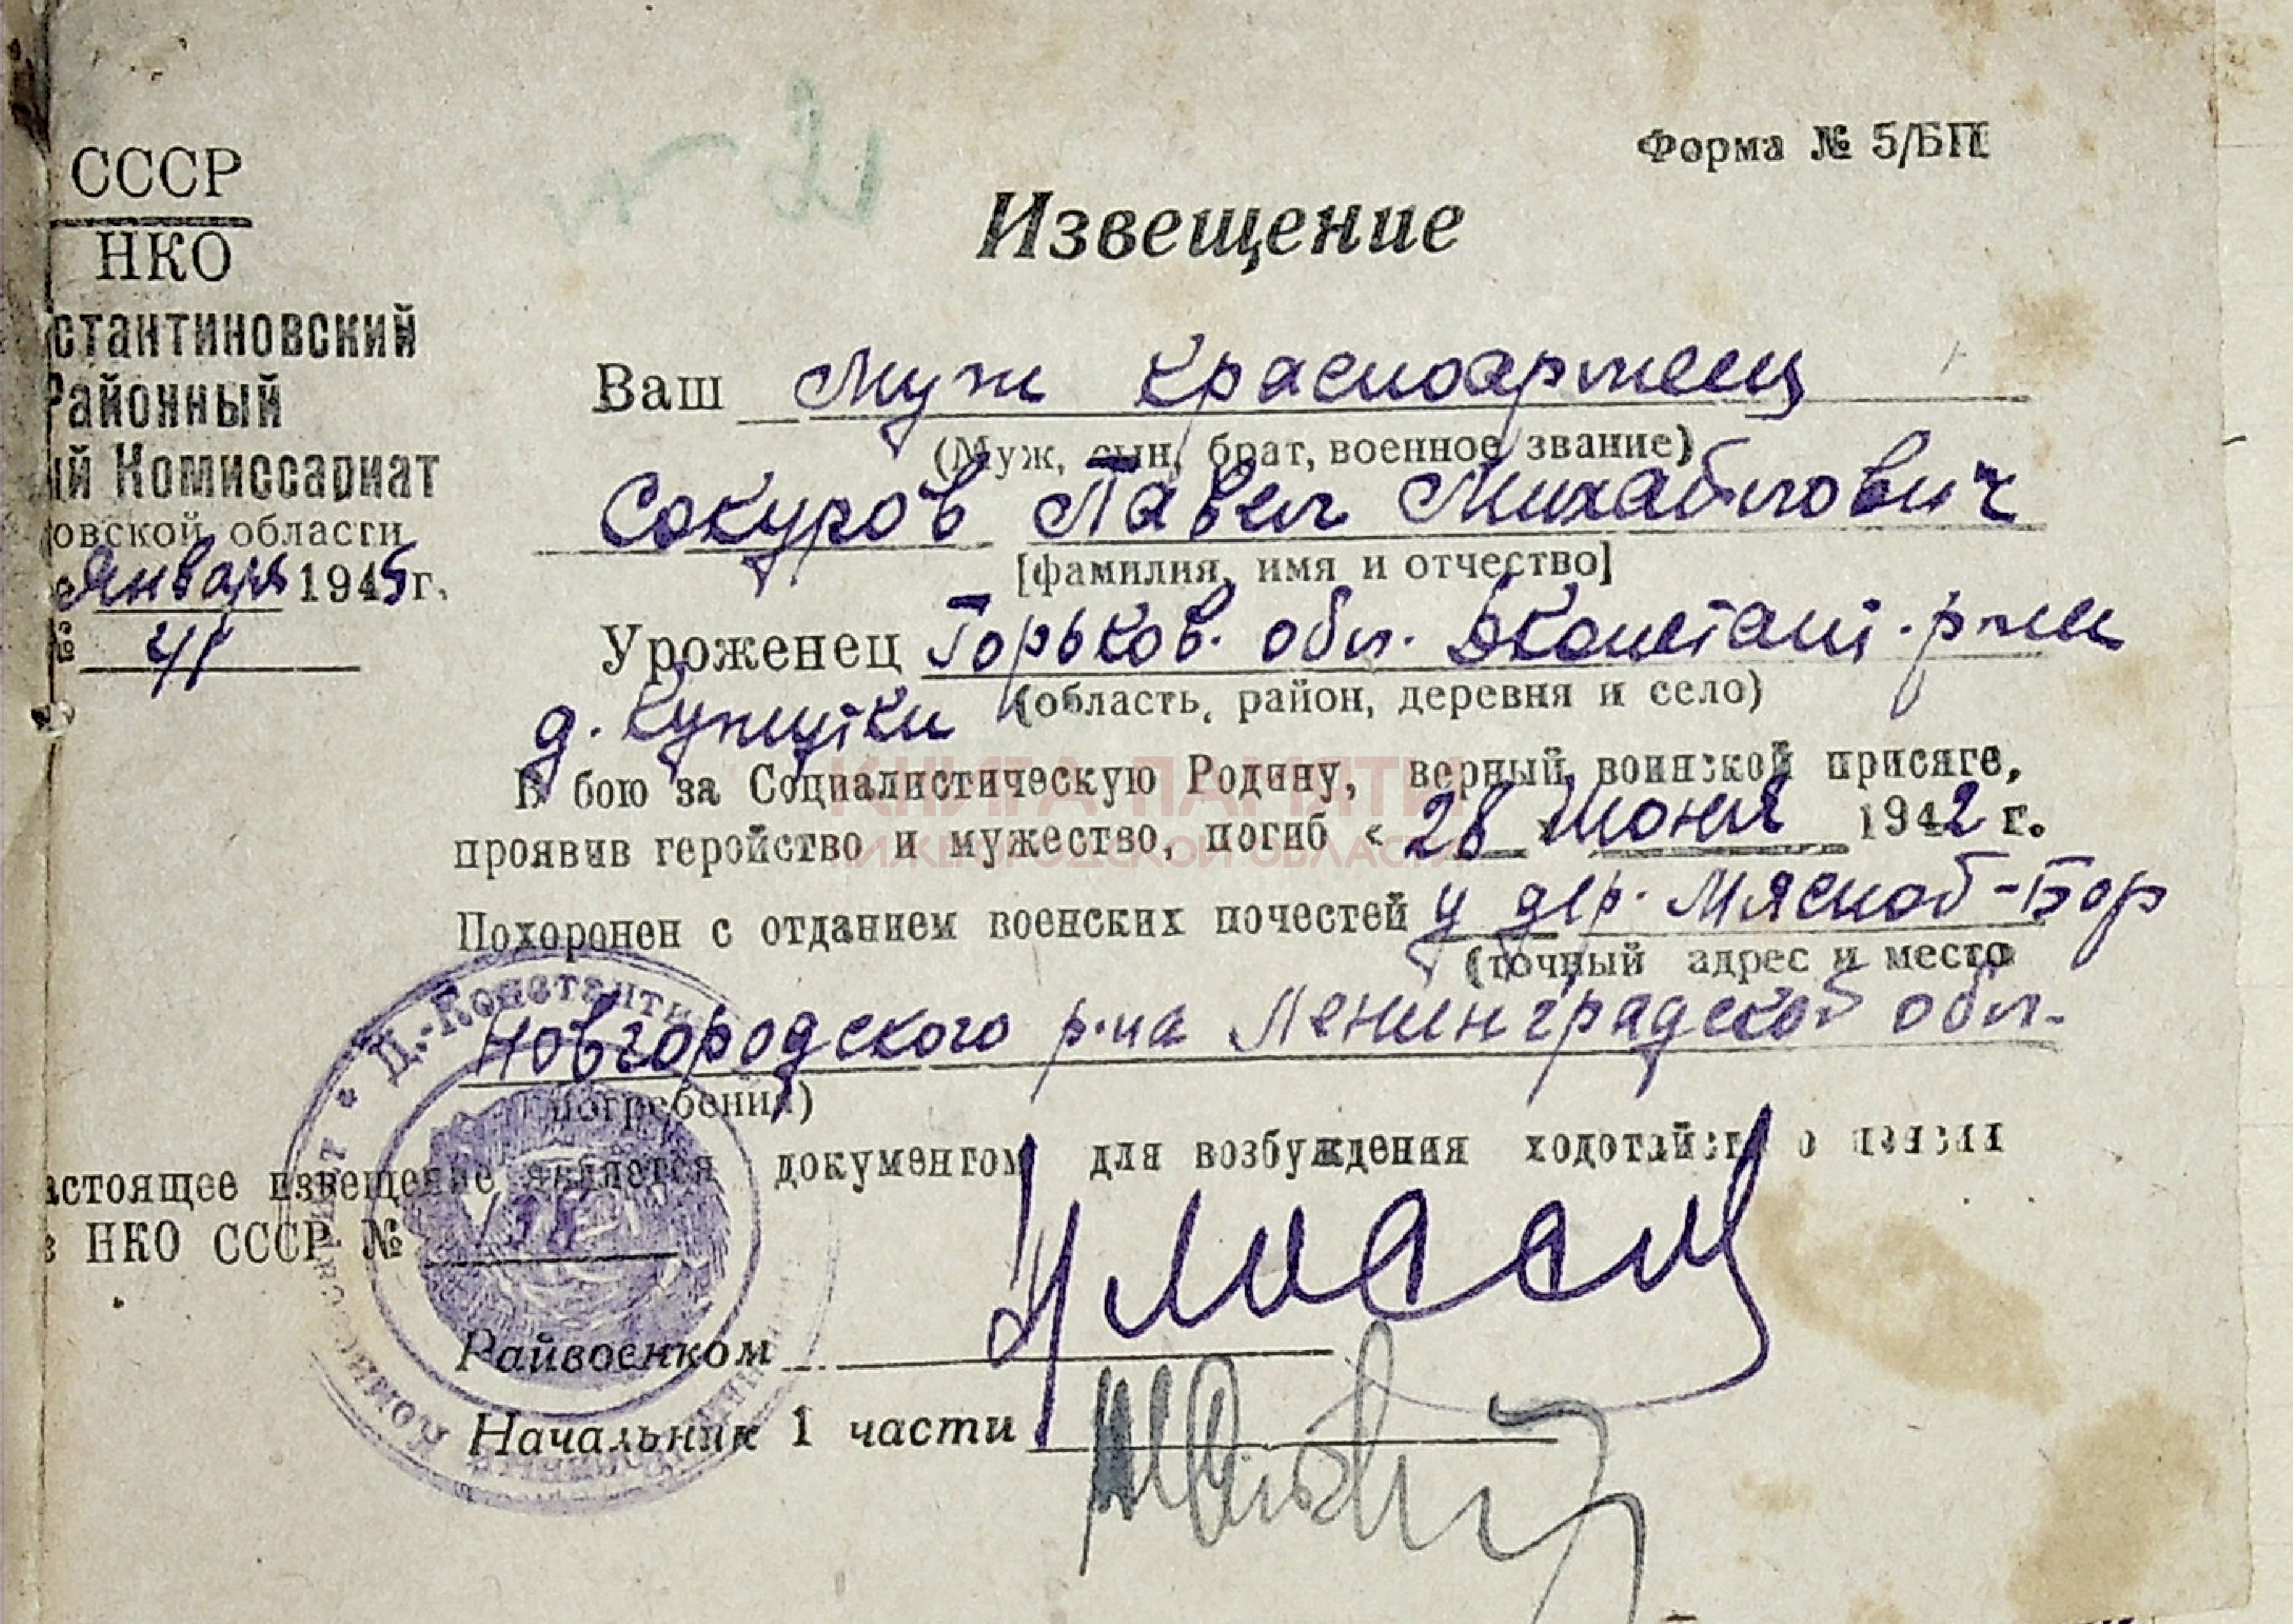 Форма № 5/БП
СССР
НКО
стантиновский
Районный
ий Комиссариат
овской области
Января 1945 г.
№ 41
Извещение
Ваш муж красноармеец
(Муж, сын, брат, военное звание)
Сокуров Павел Михайлович
[фамилия, имя и отчество]
Уроженец Горьков. обл. Дконстант. р-на
(область, район, деревня и село)
д. Кужутки
В бою за Социалистическую Родину, верный воинской присяге,
проявив геройство и мужество, погиб « 28 » Июня 1942 г.
Похоронен с отданием военских почестей у дер. Мясной-Бор
(точный адрес и место
Новгородского р-на Ленинградской обл.
погребения)
астоящее извещение является документом для возбуждения ходотайств о пенсии
НКО СССР №
Райвоенком
Начальник 1 части
Д.-Константи
КНИГА ПАМЯТИ
НИЖЕГОРОДСКОЙ ОБЛАСТИ